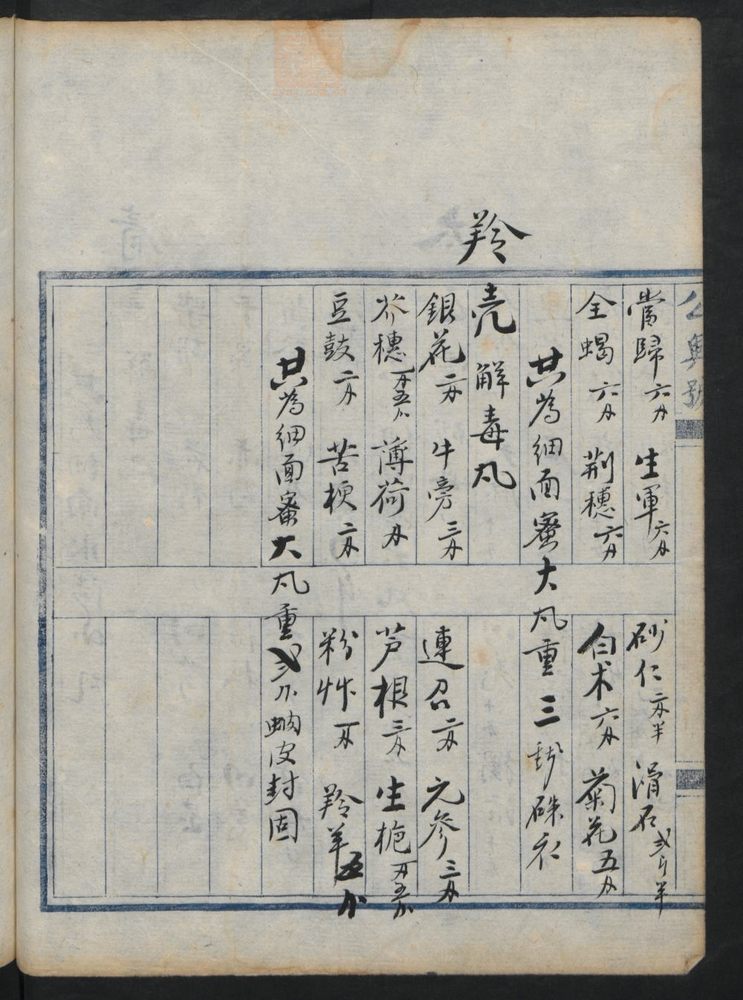 公興號
當歸六分 生軍六分 砂仁二分半 滑石弍斤半
全蝎六分 荆穗六分 白术六分 菊花五分
共為細面蜜大丸重三錢硃衣
羚
壳解毒丸
銀花二分 牛旁三分 連召二分 元参三分
芥穗一分五 薄荷分 芦根三分 生栀一分五
豆鼓二分 苦梗二分 粉艸一分 羚羊五
共為細面蜜大丸重弍 蚋皮封固